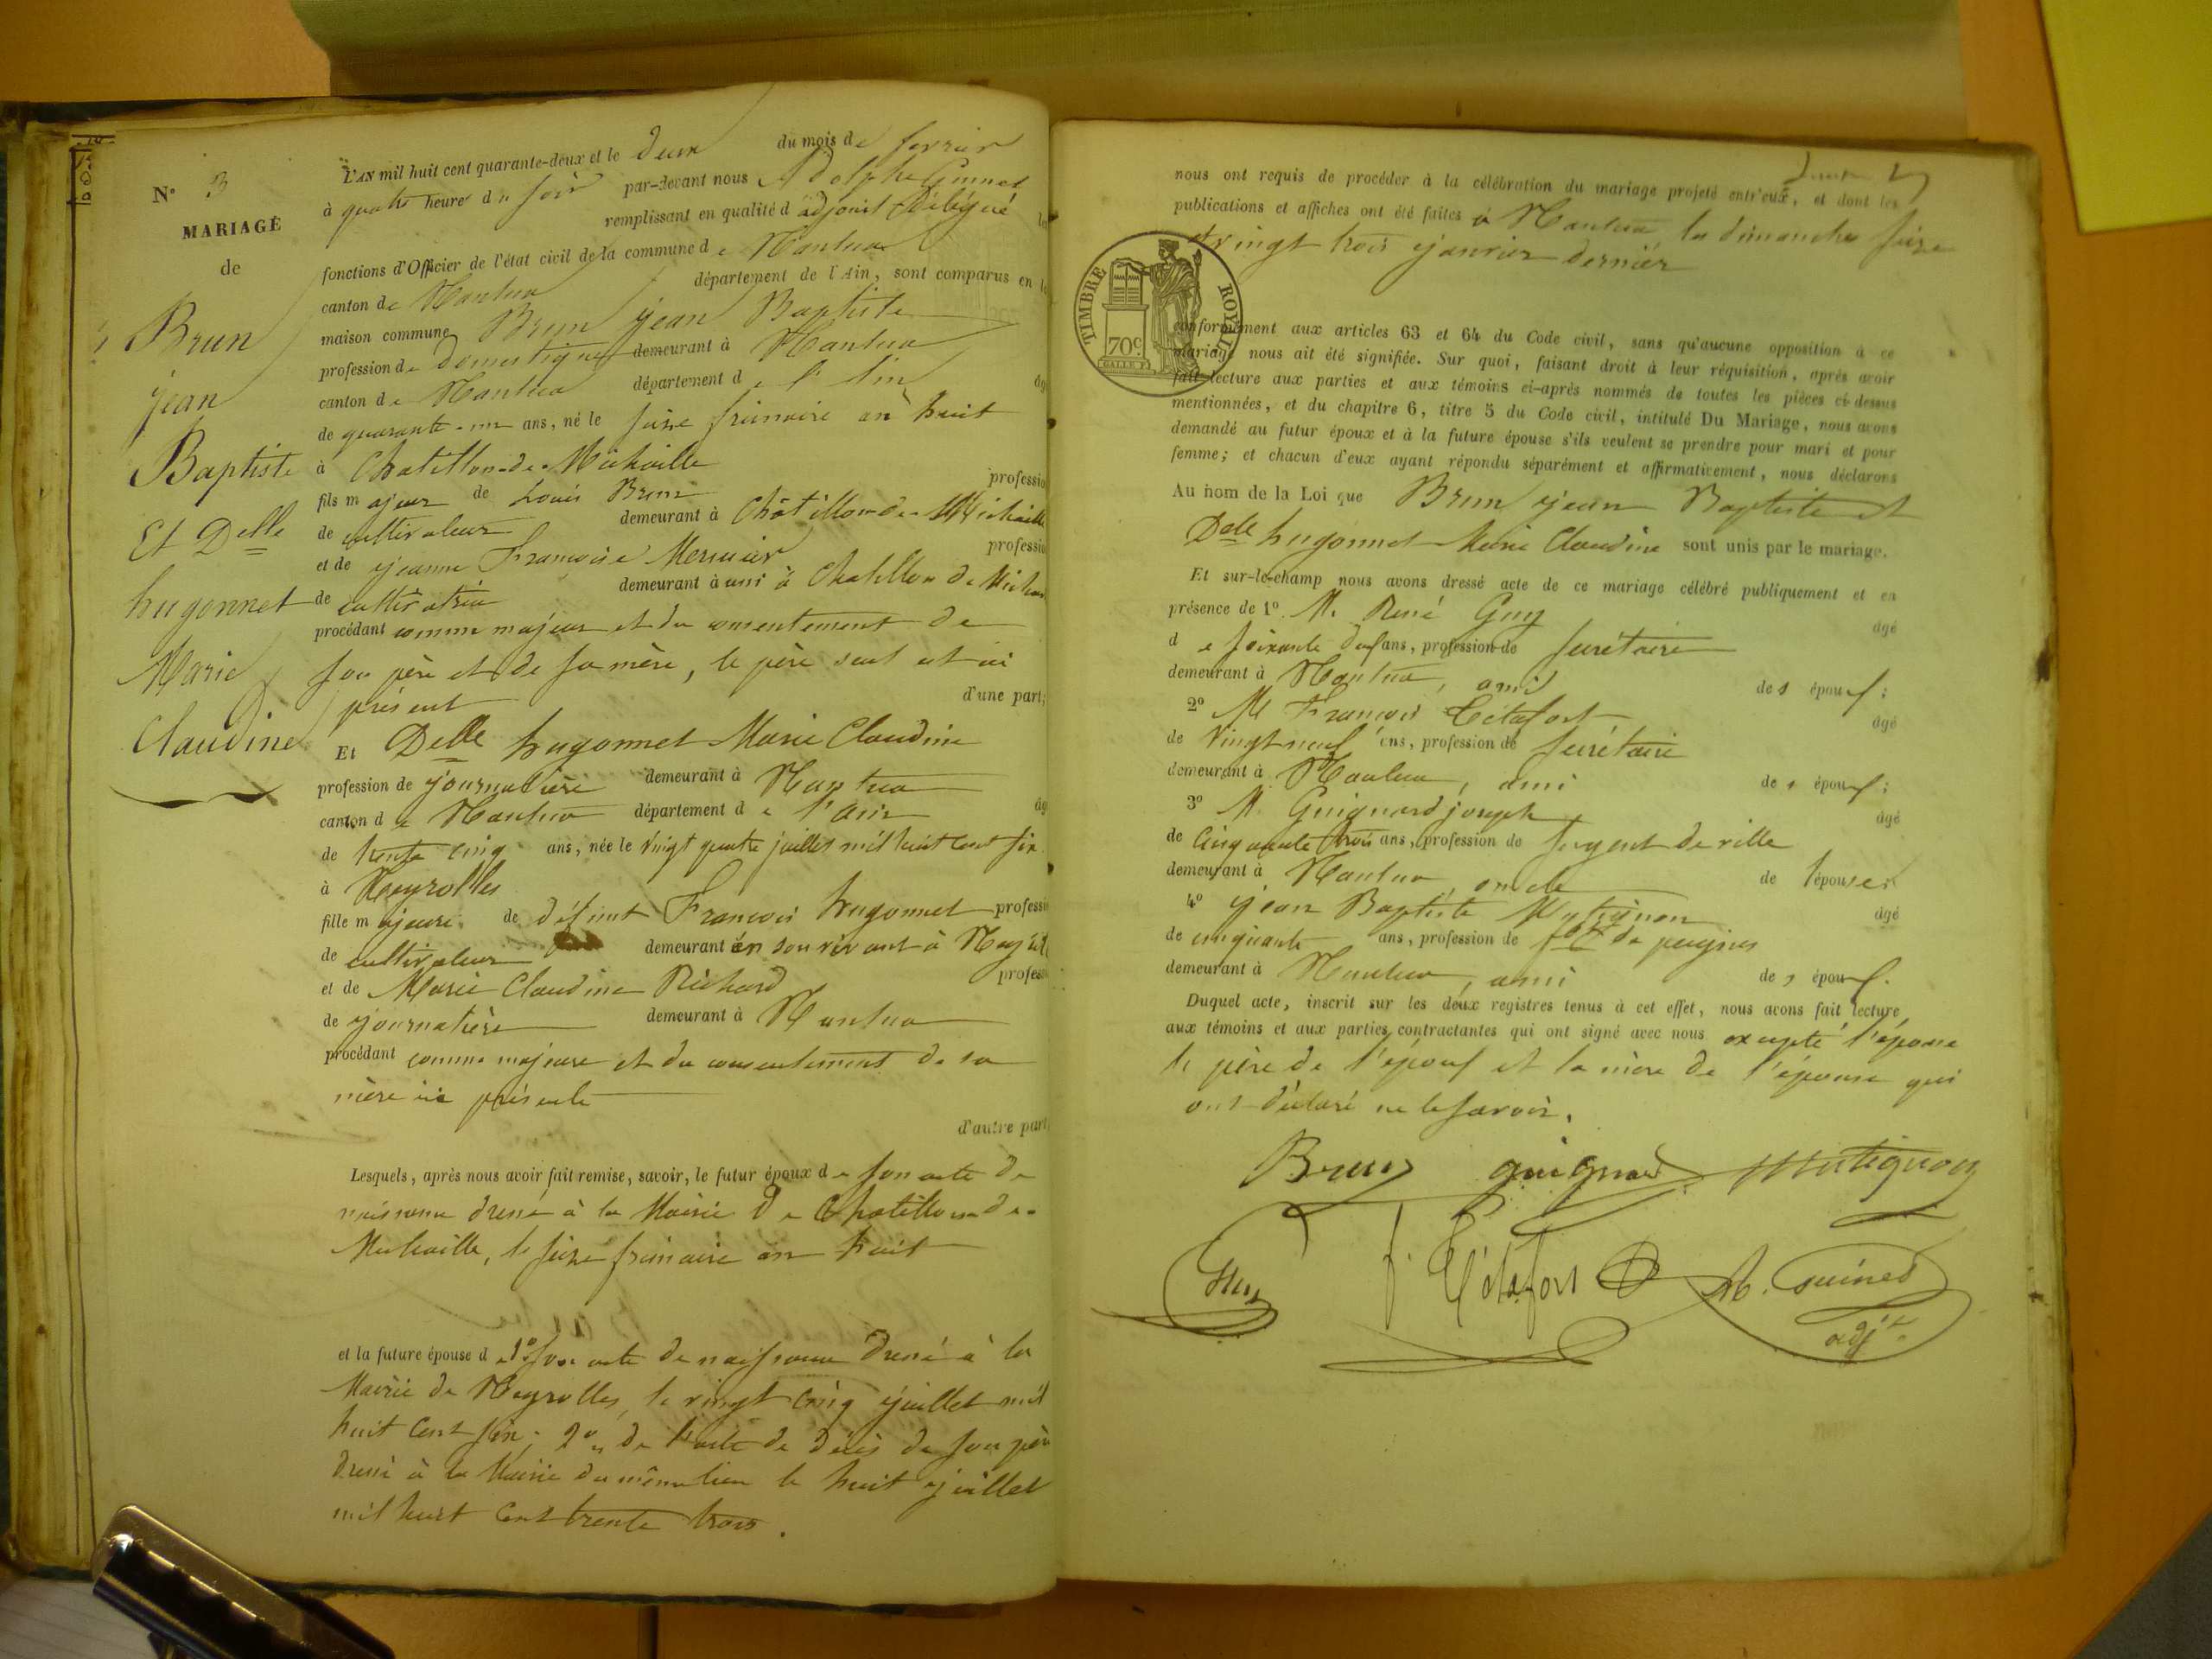 N° 3
MARIAGE
de
Brun
jean
Baptiste
Et Delle
hugonnet
Marie
Claudine
L'AN mil huit cent quarante-deux et le deux du mois de fevrier
à quatre heure du soir par-devant nous Adolphe Guinet
remplissant en qualité d'adjoint Délégué les
fonctions d'Officier de l'état civil de la commune de Nantua
canton de Nantua département de l'Ain, sont comparus en la
maison commune Brun jean Baptiste
profession de domestique demeurant à Nantua
canton de Nantua département de l'Ain âgé
de quarante-un ans, né le seize frimaire an huit
à Chatillon-de-Michaille
fils majeur de Louis Brun professio
de cultivateur demeurant à Châtillon-de-Michaille
et de jeanne Françoise Mermier professio
de cultivatrice demeurant aussi à Chatillon de Michai
procédant comme majeur et du consentement de
son père et de sa mère, le père seul est ici
présent d'une part;
Et Delle hugonnet Marie Claudine
profession de journalière demeurant à Nantua
canton de Nantua département de l'ain âg
de trente cinq ans, née le vingt quatre juillet mil huit cent six
à Neyrolles
fille majeure de défunt François hugonnet professi
de cultivateur demeurant en son vivant à Neyroll
et de Marie Claudine Richard profess
de journalière demeurant à Nantua
procédant comme majeure et du consentement de sa
mère ici présente
d'autre part
Lesquels, après nous avoir fait remise, savoir, le futur époux de son acte de
naissance dressé à la Mairie de Chatillon-de-
Michaille, le seize frimaire an huit
et la future épouse d e 1° son acte de naissance dressé à la
Mairie de Neyrolles, le vingt cinq juillet mil
huit cent six; 2° de l'acte de décès de son père
dressé à la Mairie du même lieu le huit juillet
mil huit cent trente trois.
nous ont requis de procéder à la célébration du mariage projeté entr'eux, et dont les
publications et affiches ont été faites à Nantua les dimanches seize
et vingt trois janvier dernier
TIMBRE ROYAL
70c
conformément aux articles 63 et 64 du Code civil, sans qu'aucune opposition à ce
mariage nous ait été signifiée. Sur quoi, faisant droit à leur réquisition, après avoir
fait lecture aux parties et aux témoins ci-après nommés de toutes les pièces ci-dessus
mentionnées, et du chapitre 6, titre 5 du Code civil, intitulé Du Mariage, nous avons
demandé au futur époux et à la future épouse s'ils veulent se prendre pour mari et pour
femme; et chacun d'eux ayant répondu séparément et affirmativement, nous déclarons
Au nom de la Loi que Brun jean Baptiste et
Delle hugonnet Marie Claudine sont unis par le mariage.
Et sur-le-champ nous avons dressé acte de ce mariage célébré publiquement et en
présence de 1° M. René Guy âgé
de soixante ans, profession de secrétaire
demeurant à Nantua, ami des époux;
2° M François Tétafort âgé
de vingt neuf ans, profession de secrétaire
demeurant à Nantua, ami des époux;
3° M. Guignard joseph âgé
de cinquante trois ans, profession de sergent de ville
demeurant à Nantua oncle de l'épouse;
4° jean Baptiste Mutignon âgé
de cinquante ans, profession de de peignes
demeurant à Nantua, ami des époux.
Duquel acte, inscrit sur les deux registres tenus à cet effet, nous avons fait lecture
aux témoins et aux parties contractantes qui ont signé avec nous excepté l'épouse
le père de l'époux et la mère de l'épouse qui
ont déclaré ne le savoir.
Brun guignard Mutignon
Guy f. Tétafort Ab. Guinet
adjt